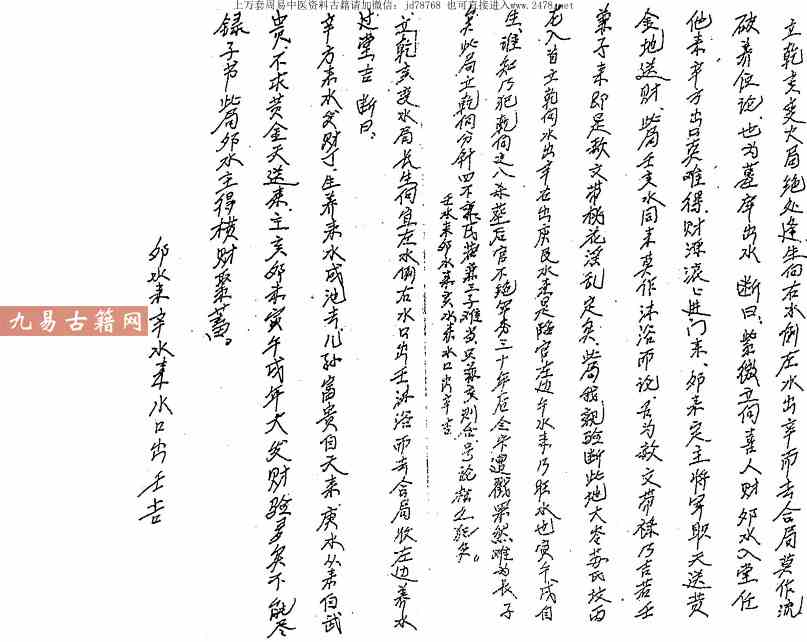 上万套周易中医资料古籍请加微信：jd78768 也可直接进入www.2478.net
立乾亥变火局绝处逢生向右水倒左水出辛而去合局莫作沈
破养位论，也为墓库出水 断曰：紫微立向喜人财卯水入堂任
他来辛方出口实难得，财源滚滚进门来，卯来定主将军职天送黄
金地送财，此局壬亥水同来莫作沐浴而论，名为救文带禄乃吉若壬
兼子来即是救文带桃花淫乱定矣，此局我亲验断此地大岺苏氏坟丙
龙入首立乾向水出辛在出庚艮水来是临官左边午水来乃旺水也寅午戌自
生，谁知乃犯乾向之八杀葬后官不绝军秀三十年后全家遭戮果然难为长子
矣此局立乾向分针四不兼氏
壬水来卯水来亥水来水口出辛吉
立乾亥变水局长生向宜左水倒右水口出壬沐浴而去合局收左边养水
过堂吉 断曰：
辛方来水发财丁，生养来水成池去儿孙富贵自天来庚水从来自武
贵，不求黄金天送来，主亥卯未寅午戌年大发财验多矣不能尽
录子书此局卯水主得横财聚蓄。
卯水来辛水来水口出壬吉
九易古籍网